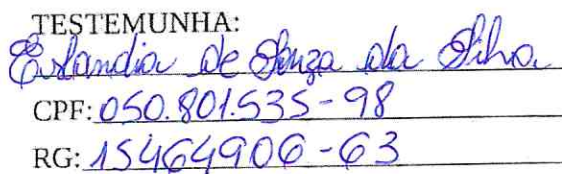 TESTEMUNHA:
Evlandia de Souza da Silva
CPF: 050.801.535-98
RG: 15464906-63